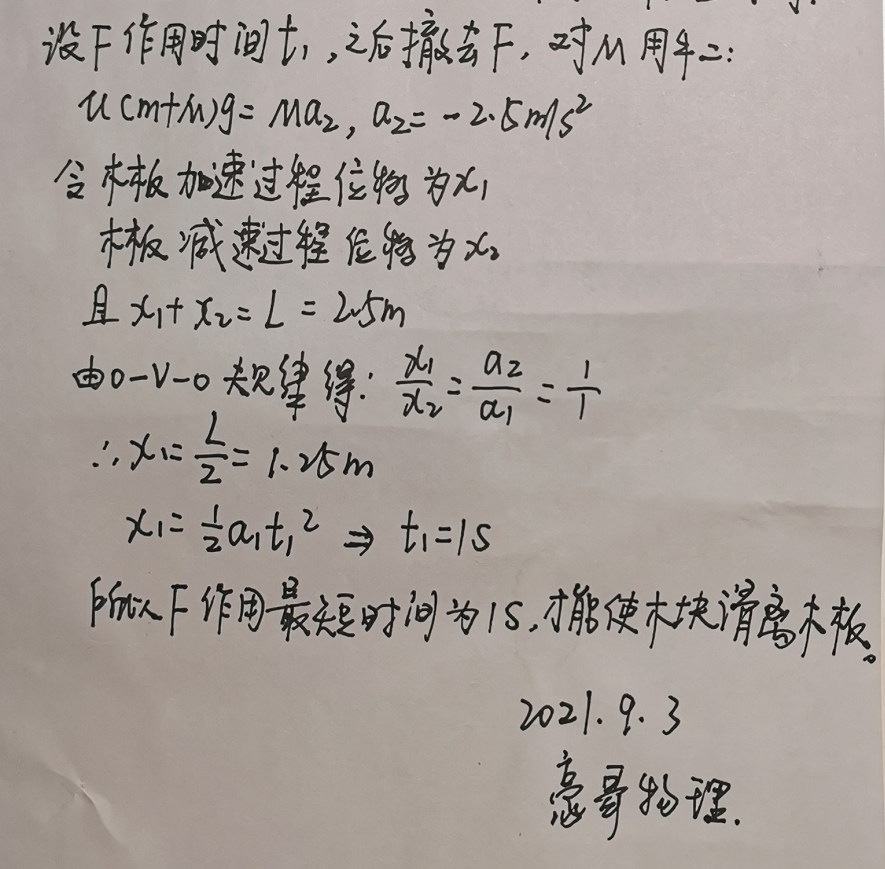 设F作用时间t₁,之后撤去F,对M用牛二:
u(m+M)g=Ma₂, a₂=-2.5m/s²
令木板加速过程位移为x₁
木板减速过程位移为x₂
且x₁+x₂=L=2.5m
由0-V-0规律得: x₁/x₂=a₂/a₁=1/1
∴x₁=L/2=1.25m
x₁=½a₁t₁² ⇒ t₁=1s
所以F作用最短时间为1S,才能使木块滑离木板。
2021.9.3
哥物理.